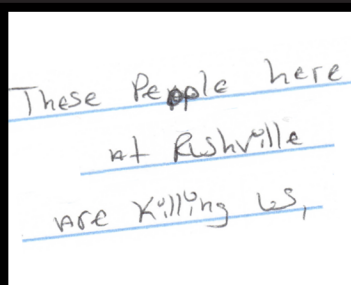 These People here
at Rushville
are Killing us,